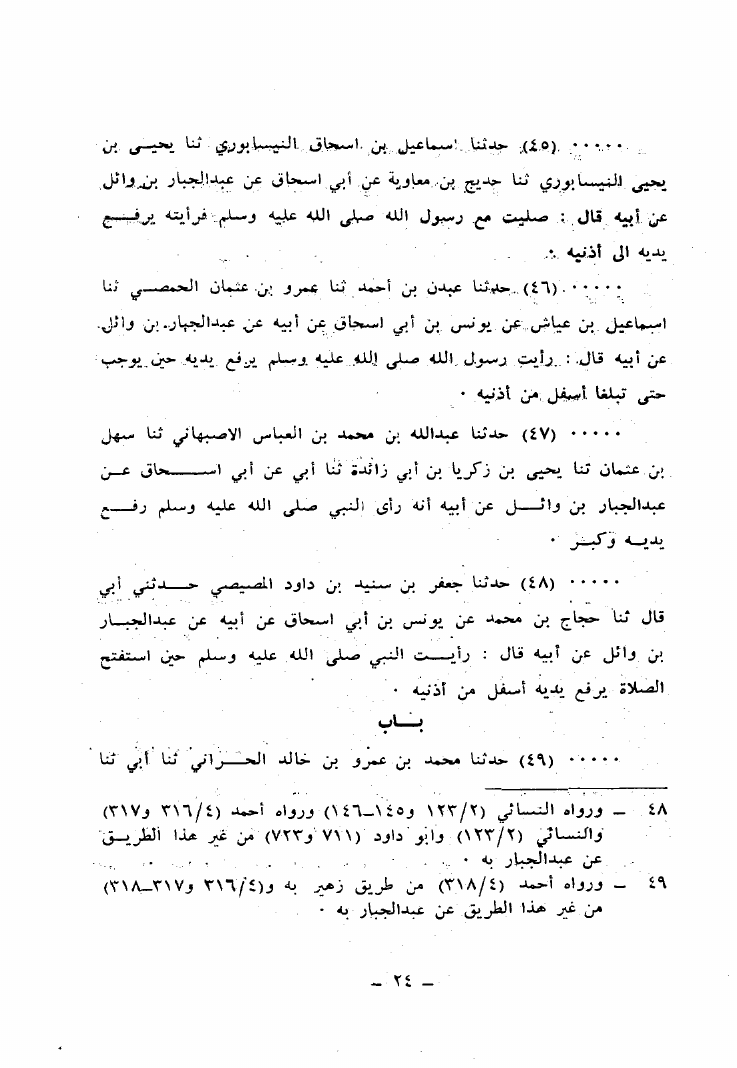 ٠٠٠٠٠ (٤٥) حدثنا اسماعيل بن اسحاق النيسابوري ثنا يحيى بن
يحيى النيسابوري ثنا حديج بن معاوية عن أبي اسحاق عن عبدالجبار بن وائل
عن أبيه قال : صليت مع رسول الله صلى الله عليه وسلم فرأيته يرفع
يديه الى أذنيه ٠
٠٠٠٠٠ (٤٦) حدثنا عبدن بن أحمد ثنا عمرو بن عثمان الحمصي ثنا
اسماعيل بن عياش عن يونس بن أبي اسحاق عن أبيه عن عبدالجبار بن وائل
عن أبيه قال : رأيت رسول الله صلى الله عليه وسلم يرفع يديه حين يوجب
حتى تبلغا أسفل من أذنيه ٠
٠٠٠٠٠ (٤٧) حدثنا عبدالله بن محمد بن العباس الاصبهاني ثنا سهل
بن عثمان ثنا يحيى بن زكريا بن أبي زائدة ثنا أبي عن أبي اسحاق عن
عبدالجبار بن وائل عن أبيه أنه رأى النبي صلى الله عليه وسلم رفع
يديه وكبر ٠
٠٠٠٠٠ (٤٨) حدثنا جعفر بن سنيد بن داود المصيصي حدثني أبي
قال ثنا حجاج بن محمد عن يونس بن أبي اسحاق عن أبيه عن عبدالجبار
بن وائل عن أبيه قال : رأيت النبي صلى الله عليه وسلم حين استفتح
الصلاة يرفع يديه أسفل من أذنيه ٠
باب
٠٠٠٠٠ (٤٩) حدثنا محمد بن عمرو بن خالد الحراني ثنا أبي ثنا
٤٨ – ورواه النسائي (١٢٣/٢ و١٤٥–١٤٦) ورواه أحمد (٣١٦/٤ و٣١٧)
والنسائي (١٢٣/٢) وابو داود (٧١١ و٧٢٣) من غير هذا الطريق
عن عبدالجبار به ٠
٤٩ – ورواه أحمد (٣١٨/٤) من طريق زهير به و(٣١٦/٤ و٣١٧–٣١٨)
من غير هذا الطريق عن عبدالجبار به ٠
– ٢٤ –